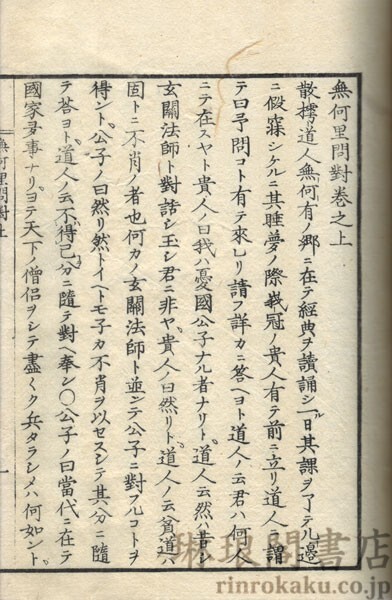 無何里問對卷之上
散樗道人無何有ノ郷ニ在テ經典ヲ讀誦シ一日其課ヲ了テ几邊
ニ假寐シケルニ其睡夢ノ際峩冠ノ貴人有テ前ニ立リ道人ニ謂
テ曰予問コト有テ來レリ請フ詳カニ答ヘヨト道人ノ云君ハ何人
ニテ在スヤト貴人ノ曰我ハ憂國公子ナル者ナリト道人云然ハ昔シ
玄關法師ト對話シ玉シ君ニ非ヤ貴人ノ曰然リト道人ノ云貧道ハ
固トニ不肖ノ者也何カ玄關法師ト並ンテ公子ニ對フルコトヲ
得ント公子ノ曰然リ然トイヘトモ子カ不肖ヲ以セスシテ其分ニ隨
テ答ヨト道人ノ云不得已分ニ隨テ對ヘ奉シ〇公子ノ曰當代ニ在テ
國家多事ナリヨテ天下ノ僧侶ヲシテ盡ク兵タラシメハ何如ント
無何里問對上
一
琳琅閣書店
rinrokaku.co.jp